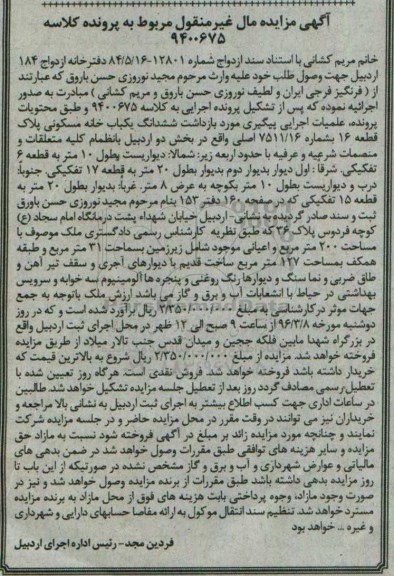 آگهی مزایده مال غیرمنقول مربوط به پرونده کلاسه
۹۴۰۰۶۷۵
خانم مریم کشانی با استناد سند ازدواج شماره ۱۲۸۰۱-۸۴/۵/۱۶ دفترخانه ازدواج ۱۸۴
اردبیل جهت وصول طلب خود علیه وارث مرحوم مجید نوروزی حسن باروق که عبارتند
از ( فرنگیز فرجی ایران و لطیف نوروزی حسن باروق و مریم کشانی ) مبادرت به صدور
اجرائیه نموده که پس از تشکیل پرونده اجرایی به کلاسه ۹۴۰۰۶۷۵ و طبق محتویات
پرونده، علمیات اجرایی پیگیری مورد بازداشت ششدانگ یکباب خانه مسکونی پلاک
قطعه ۱۶ بشماره ۷۵۱۱/۱۶ اصلی واقع در بخش دو اردبیل بانظمام کلیه متعلقات و
منضمات شرعیه و عرفیه با حدود اربعه زیر: شمالا: دیواریست بطول ۱۰ متر به قطعه ۶
تفکیکی. شرقا : اول دیوار بدیوار دوم بدیوار بطول ۲۰ متر به قطعه ۱۷ تفکیکی. جنوبا:
درب و دیواریست بطول ۱۰ متر بکوچه به عرض ۸ متر. غربا: بدیوار بطول ۲۰ متر به
قطعه ۱۵ تفکیکی که در صفحه ۱۶۰ دفتر ۱۵۳ بنام مرحوم مجید نوروزی حسن باورق
ثبت و سند صادر گردیده به نشانی- اردبیل خیابان شهداء پشت درمانگاه امام سجاد (ع)
کوچه فردوس پلاک ۳۶ که طبق نظریه کارشناس رسمی دادگستری ملک موصوف با
مساحت ۲۰۰ متر مربع و اعیانی موجود شامل زیرزمین بسماحت ۳۱ متر مربع و طبقه
همکف بمساحت ۱۲۷ متر مربع ساخت قدیم با دیوارهای آجری و سقف تیر آهن و
طاق ضربی و نما سنگ و دیوارها رنگ روغنی و پنجره ها آلومینیوم سه خوابه و سرویس
بهداشتی در حیاط با انشعابات آب و برق و گاز می باشد ارزش ملک باتوجه به جمع
جهات موثر در کارشناسی به مبلغ ۲/۳۵۰/۰۰۰/۰۰۰ ریال برآورد شده است و که در روز
دوشنبه مورخه ۹۶/۳/۸ از ساعت ۹ صبح الی ۱۲ ظهر در محل اجرای ثبت اردبیل واقع
در بزرگراه شهدا مابین فلکه ججین و میدان قدس جنب تالار میلاد از طریق مزایده
فروخته خواهد شد. مزایده از مبلغ ۲/۳۵۰/۰۰۰/۰۰۰ ریال شروع به بالاترین قیمت که
خریدار داشته باشد فروخته خواهد شد فروش نقدی است. هرگاه روز تعیین شده با
تعطیل رسمی مصادف گردد روز بعد از تعطیل جلسه مزایده تشکیل خواهد شد. طالبین
در ساعات اداری جهت کسب اطلاع بیشتر به اجرای ثبت اردبیل به نشانی بالا مراجعه و
خریداران نیز می توانند در وقت مقرر در محل مزایده حاضر و در جلسه مزایده شرکت
نمایند و چنانچه مورد مزایده زائد بر مبلغ در آگهی فروخته شود نسبت به مازاد حق
مزایده و سایر هزینه های توافقی طبق مقررات وصول خواهد شد در ضمن بدهی های
مالیاتی و عوارض شهرداری و آب و برق و گاز مشخص نشده در صورتیکه از این باب تا
روز مزایده بدهی داشته باشد طبق مقررات از برنده مزایده وصول خواهد شد و نیز در
صورت وجود مازاد، وجوه پرداختی بابت هزینه های فوق از محل مازاد به برنده مزایده
مسترد خواهد شد. تنظیم سند انتقال موکول به ارائه مفاصا حسابهای دارایی و شهرداری
و غیره ... خواهد بود
فردین مجد- رئیس اداره اجرای اردبیل